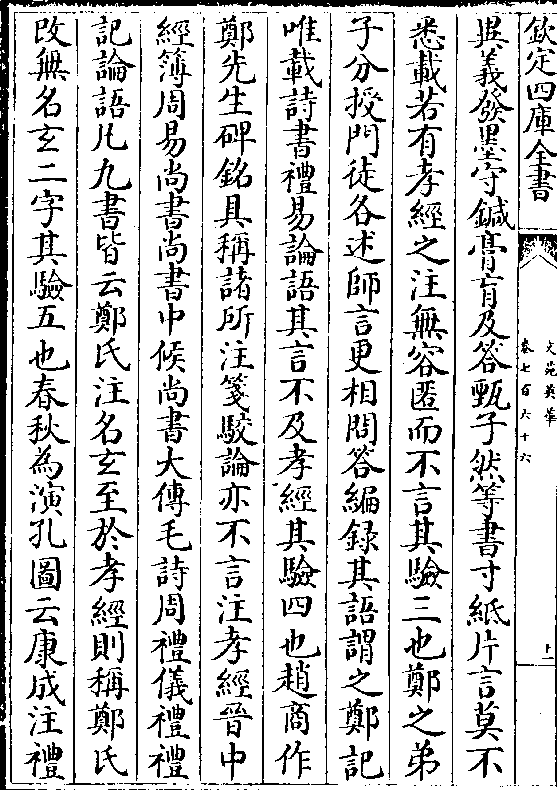 欽定四庫全書
文苑英華
卷七百六十六
異義發墨守鍼膏肓及答甄子然等書寸紙片言莫不
悉載若有孝經之注無容匿而不言其驗三也鄭之弟
子分授門徒各述師言更相問答編録其語謂之鄭記
唯載詩書禮易論語其言不及孝經其驗四也趙商作
鄭先生碑銘具稱諸所注箋駮論亦不言注孝經晉中
經簿周易尚書尚書中候尚書大傳毛詩周禮儀禮禮
記論語凡九書皆云鄭氏注名玄至於孝經則稱鄭氏
改無名玄二字其驗五也春秋為演孔圖云康成注禮